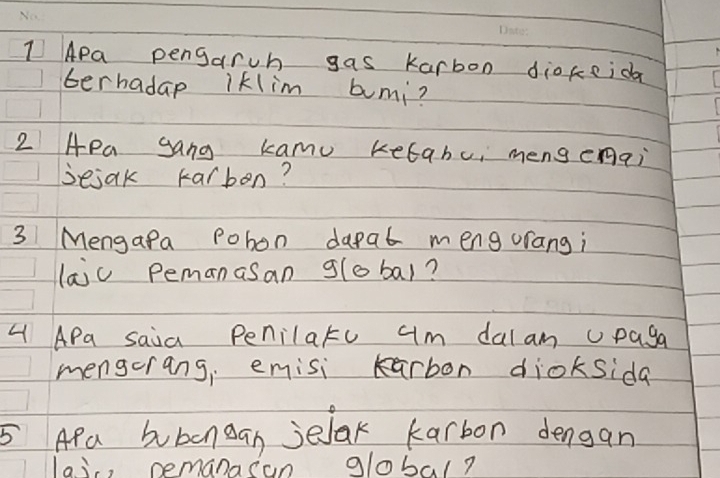 No.
Date:
1 Apa pengaruh gas karbon diokeida
terhadap iklim bumi?
2 Apa yang kamu ketahui mengenai
jejak karbon?
3 Mengapa Pohon dapat mengurangi
laju Pemanasan global?
4 Apa saja Penilaku 4m dalam upaya
mengurangi emisi karbon dioksida
5 Apa hubungan jejak karbon dengan
laju pemanasan global?